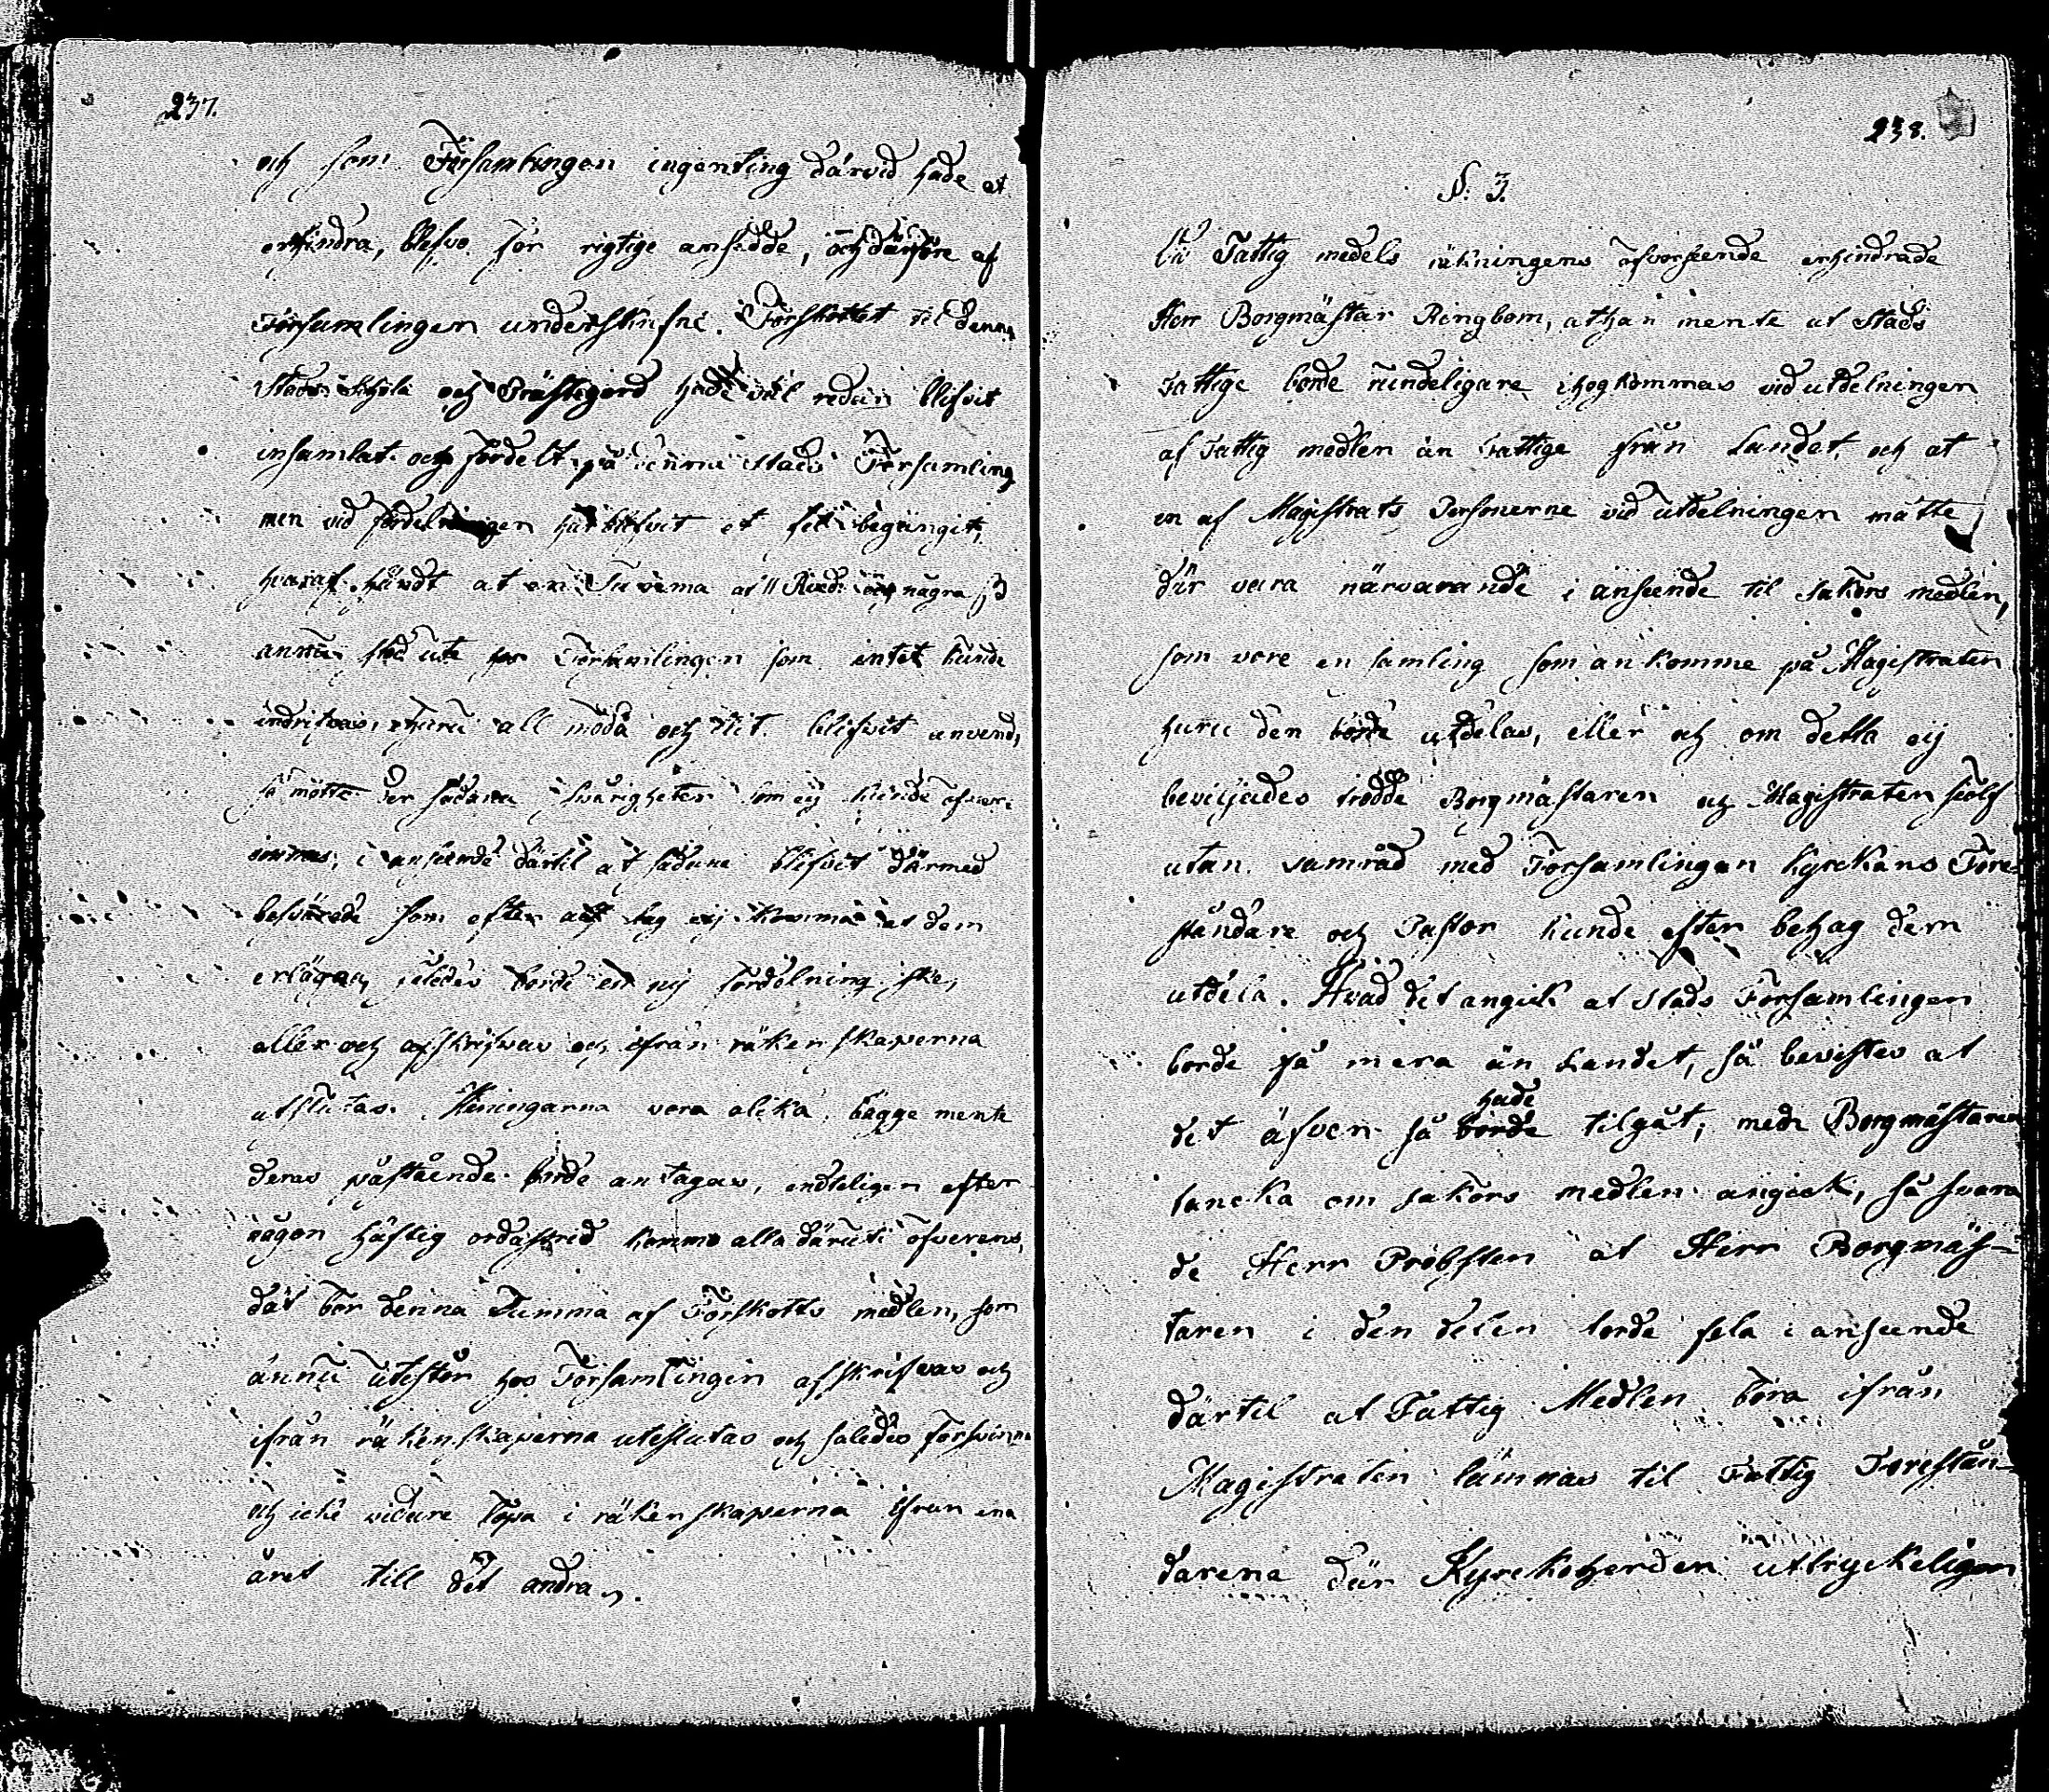 237.
och som Församlingen ingenting därvid hade at
erhindra, blefvo för rigtige ansedde, och därföre af
Församlingen underskrifne. Förskottet til denna
Stads Schola och Prästegord hade väl redan blifvit
insamlat och fördelt på denna Stads Församling
men vid fördelningen har blifvit et fel begångit,
hvaraf händt at en Summa af 11 Rd. och några ß
ännu stod ute för Församlingen som intet kunde
indrifvas, ehuru all möda och flit blifvit anvend,
så mötte der sådana svårigheter som ej kunde öfver-
innas, i anseende därtil at sådane blifvit därmed
besvärade som efter all lag eij kommo at dem
erlägga, således borde en nij fördelning ske,
eller och afskrifvas och ifrån räkenskaperna
utslutas. Meningarna vora olika, bägge mente
deras påstående borde antagas, endteligen efter
någon häftig ordastrid kommo alla däruti öfverens,
dät bör denna Summa af Förskotts medlen, som
ännu utestår hos Församlingen afskrifvas och
ifrån räkenskaperna uteslutas och således försvinna
och icke vidare löpa i räkenskaperna ifrån ena
året till det andra.
238.
§. 3.
Vid Fattig medels räkningens öfverseende erhindrade
Herr Borgmästar Ringbom, at han mente at Stads
Fattige borde rundeligare ihogkommas vid utdelningen
af Fattig medlen än Fattige från Landet, och at
en af Magistrats Personerne vid utdelningen måtte
där vara närvarande i anseende til sakörs medlen,
som vore en samling som ankomme på Magistraten
huru den borde utdelas, eller och om detta eij
beviljades trodde Borgmästaren och Magistraten sjelf
utan samråd med Församlingen Kyrckans Före-
ståndare och Pastor kunde efter behag dem
utdela. Hvad det angick at Stads Församlingen
borde få mera än Landet, så bevistes at
hade
det äfven så borde tilgåt, med Borgmästaren
tancka om sakörs medlen angick, så svara
de Herr Probsten at Herr Borgmäs-
taren i den delen torde fela i anseende
därtil at Fattig Medlen böra ifrån
Magistraten lämnas til Fattig Förestån-
darena där Kyrckoherden uttryckeligen